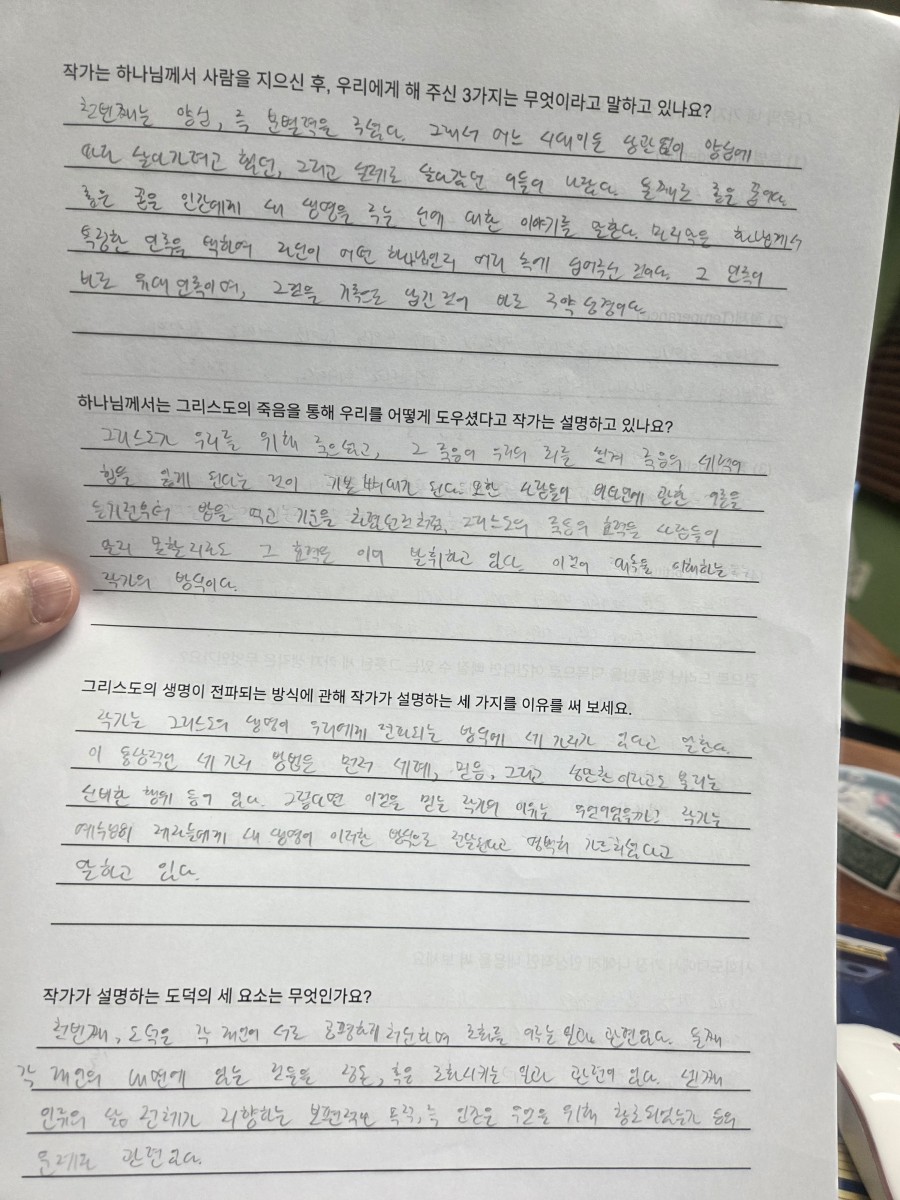 작가는 하나님께서 사람을 지으신 후, 우리에게 해 주신 3가지는 무엇이라고 말하고 있나요?
첫번째는 양심, 즉 분별력을 주셨다. 그래서 어느 시대이든 상관없이 양심에
따라 살아가려고 했던, 그리고 실제로 살아갔던 이들이 나왔다. 둘째로 좋은 꿈이다.
좋은 꿈은 인간에게 새 생명을 주는 신에 대한 이야기를 말한다. 마지막은 하나님께서
특정한 민족을 택하여 자신이 어떤 하나님인지 머리 속에 심어주신 것이다. 그 민족이
바로 유대 민족이며, 그것을 기록으로 남긴 것이 바로 구약 성경이다.
하나님께서는 그리스도의 죽음을 통해 우리를 어떻게 도우셨다고 작가는 설명하고 있나요?
그리스도가 우리를 위해 죽으셨고, 그 죽음이 우리의 죄를 씻겨 죽음의 세력이
힘을 잃게 된다는 것이 기본 뼈대가 된다. 또한 사람들이 비타민에 관한 이론을
듣기 전부터 밥을 먹고 기운을 차렸던 것처럼, 그리스도의 죽음의 효력을 사람들이
알지 못할지라도 그 효력은 이미 발휘하고 있다. 이것이 대속을 이해하는
작가의 방식이다.
그리스도의 생명이 전파되는 방식에 관해 작가가 설명하는 세 가지를 이유를 써 보세요.
작가는 그리스도의 생명이 우리에게 전파되는 방식에 세 가지가 있다고 말한다.
이 통상적인 세 가지 방법은 먼저 세례, 믿음, 그리고 성만찬이라고도 불리는
신비한 행위 등이 있다. 그렇다면 이것을 믿는 작가의 이유는 무엇이었을까? 작가는
예수님이 제자들에게 새 생명이 이러한 방식으로 전달된다고 명백히 가르치셨다고
말하고 있다.
작가가 설명하는 도덕의 세 요소는 무엇인가요?
첫번째, 도덕은 각 개인이 서로 공평하게 처신하며 조화를 이루는 일과 관련있다. 둘째
각 개인의 내면에 있는 것들을 정돈, 혹은 조화시키는 일과 관련이 있다. 셋째
인류의 삶 전체가 지향하는 보편적인 목적, 즉 인간은 무엇을 위해 창조되었는가 등의
문제와 관련있다.